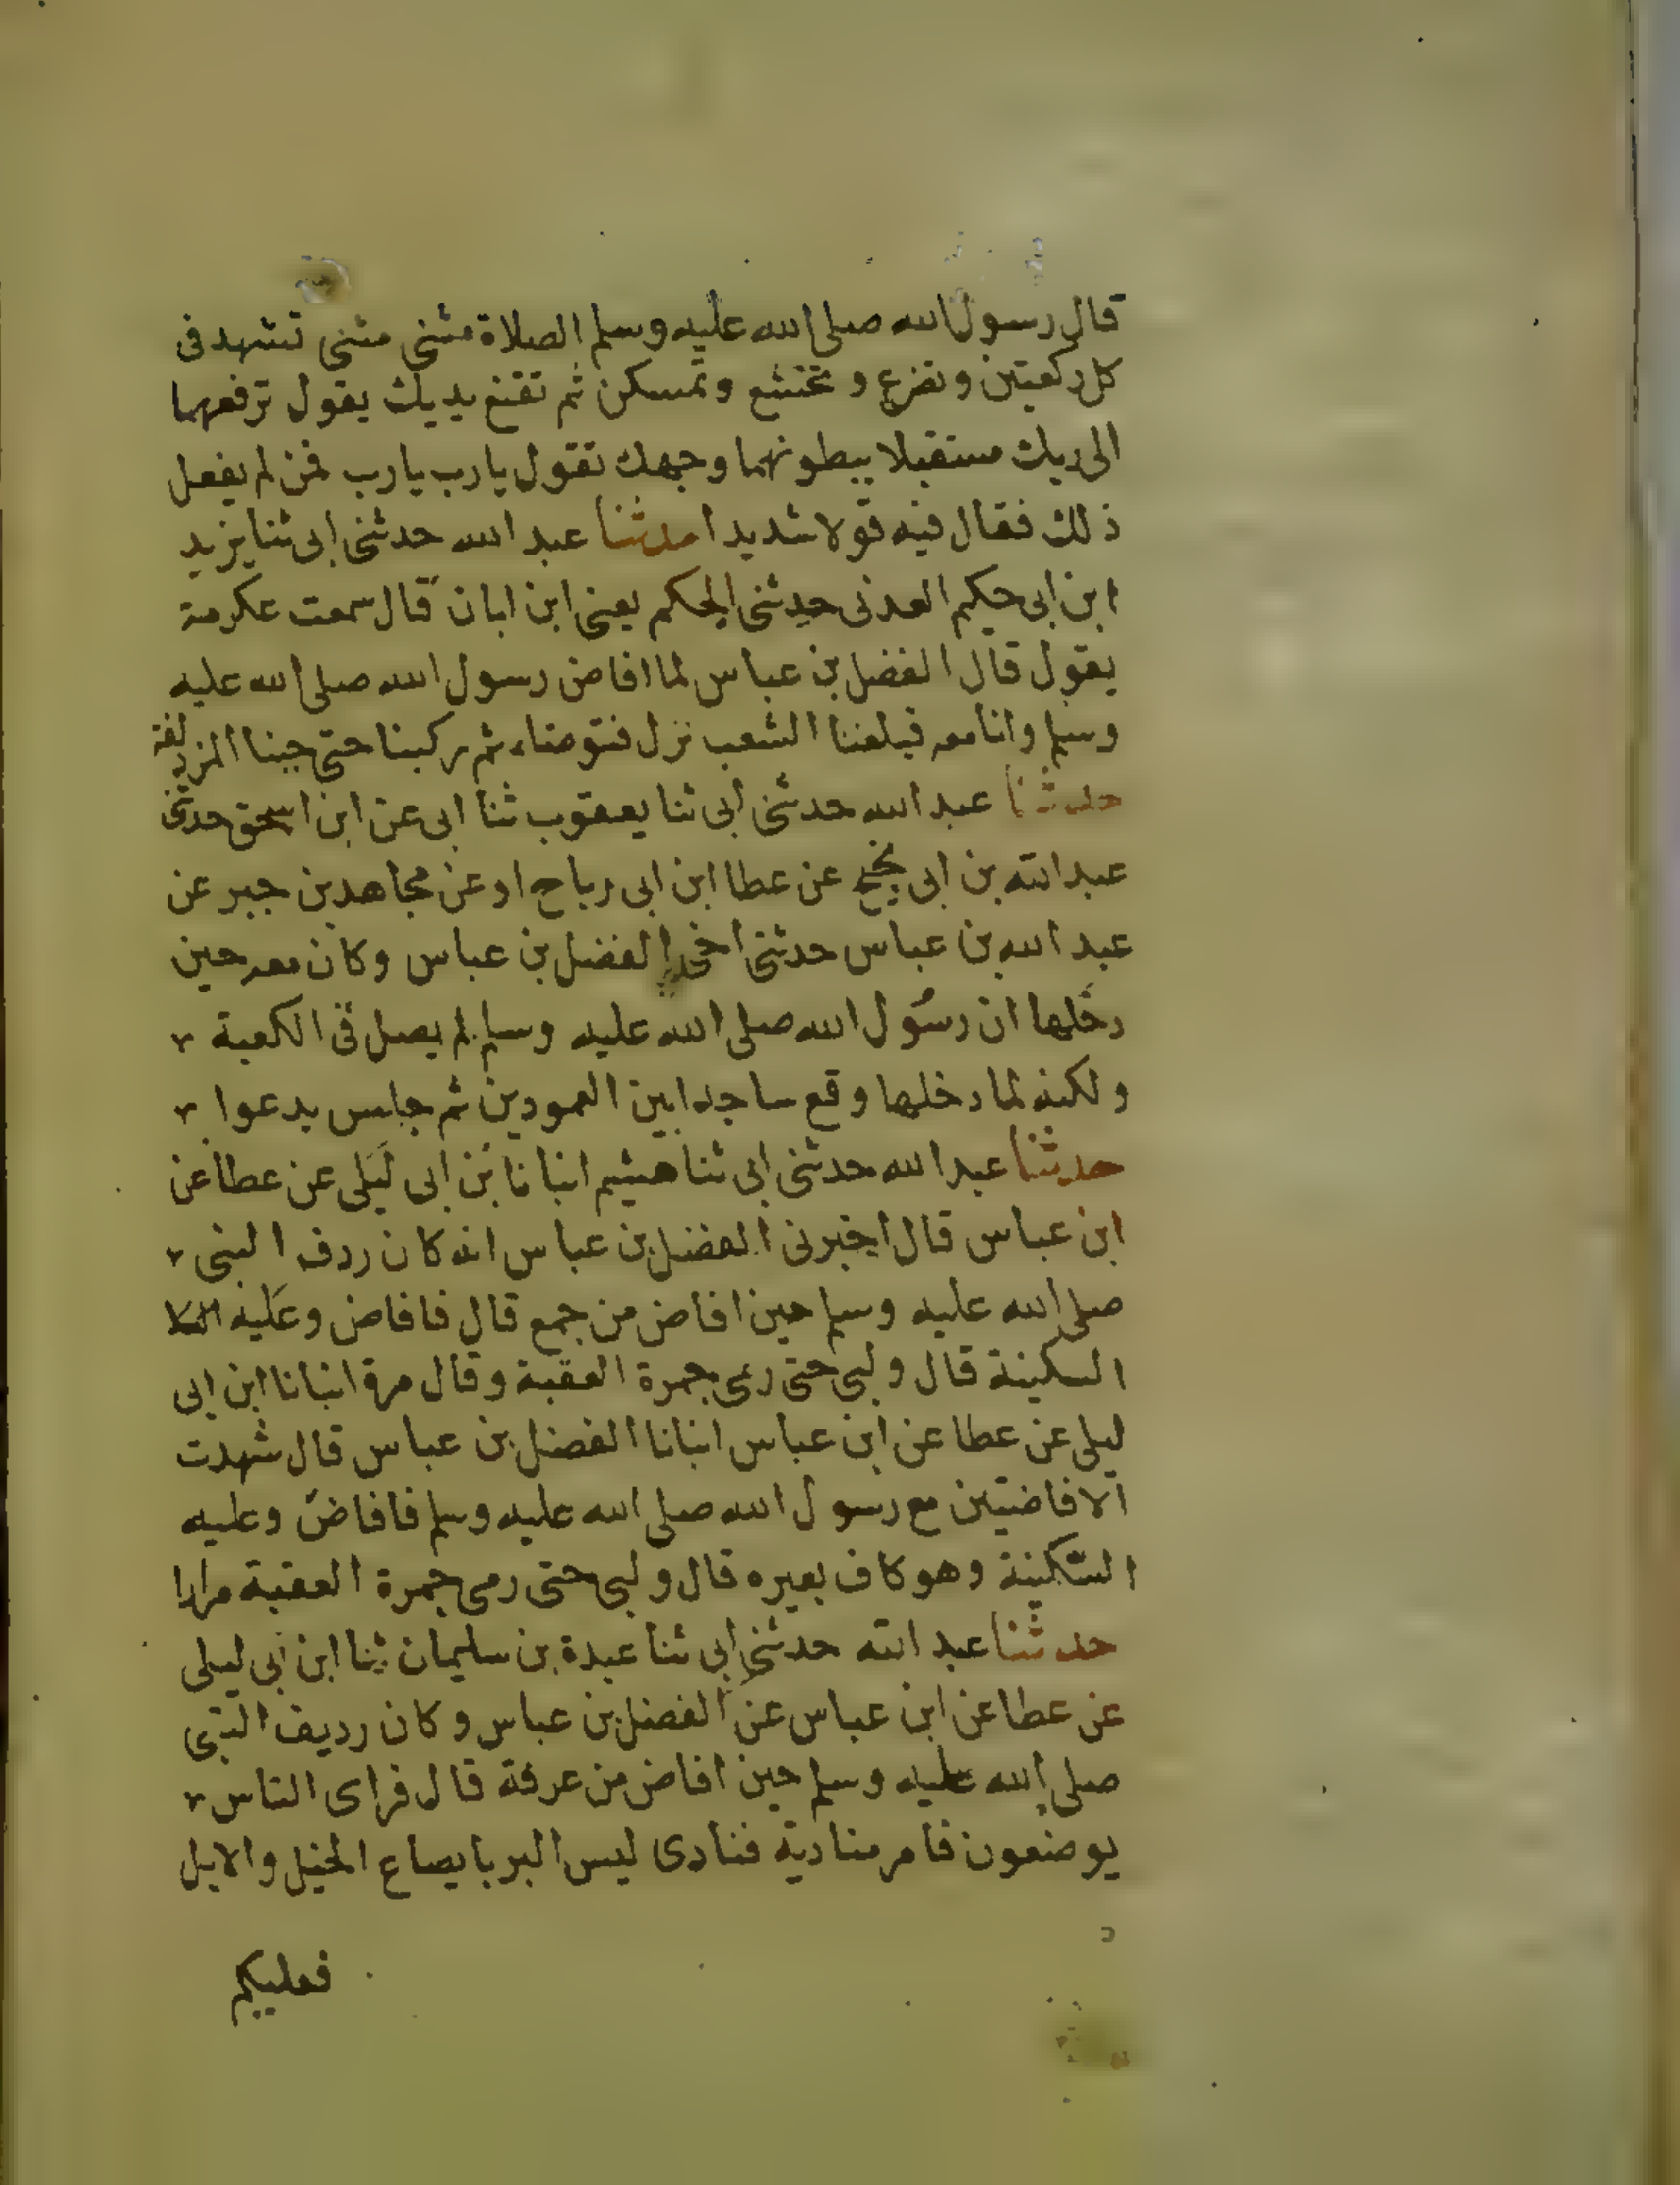 قال رسول الله صلى الله عليه وسلم الصلاة مثنى مثنى تشهد فى
كل ركعتين وتضرع وتخشع وتمسكن ثم تقنع يديك يقول ترفعهما
الى ربك مستقبلا ببطونهما وجهك تقول يارب يارب فمن لم يفعل
ذلك فقال فيه قولا شديدا حدثنا عبد الله حدثنى ابى ثنا يزيد
ابن ابى حكيم العدنى حدثنى الحكم يعنى ابن ابان قال سمعت عكرمة
يقول قال الفضل بن عباس لما افاض رسول الله صلى الله عليه
وسلم وانا معه فبلغنا الشعب نزل فتوضاء ثم ركبنا حتى جينا المزدلفة
حدثنا عبد الله حدثنى ابى ثنا يعقوب ثنا ابى عن ابن اسحق حدثنى
عبد الله بن ابى نجيح عن عطا ابن ابى رباح او عن مجاهد بن جبر عن
عبد الله بن عباس حدثنى اخى الفضل بن عباس وكان معه حين
دخلها ان رسول الله صلى الله عليه وسلم لم يصل فى الكعبة
ولكنه لما دخلها وقع ساجدا بين العمودين ثم جلس يدعوا
حدثنا عبد الله حدثنى ابى ثنا هشيم انبانا بن ابى ليلى عن عطا عن
ابن عباس قال اخبرنى الفضل بن عباس انه كان ردف النبى
صلى الله عليه وسلم حين افاض من جمع قال فافاض وعليه
السكينة قال ولبى حتى رمى جمرة العقبة وقال مرة انبانا ابن ابى
ليلى عن عطا عن ابن عباس انبانا الفضل بن عباس قال شهدت
الافاضتين مع رسول الله صلى الله عليه وسلم فافاض وعليه
السكينة وهو كاف بعيره قال ولبى حتى رمى جمرة العقبة مرارا
حدثنا عبد الله حدثنى ابى ثنا عبدة بن سليمان ثنا ابن ابى ليلى
عن عطا عن ابن عباس عن الفضل بن عباس وكان رديف النبى
صلى الله عليه وسلم حين افاض من عرفة قال فراى الناس
يوضعون فامر مناديه فنادى ليس البر بايضاع الخيل والابل
فعليكم